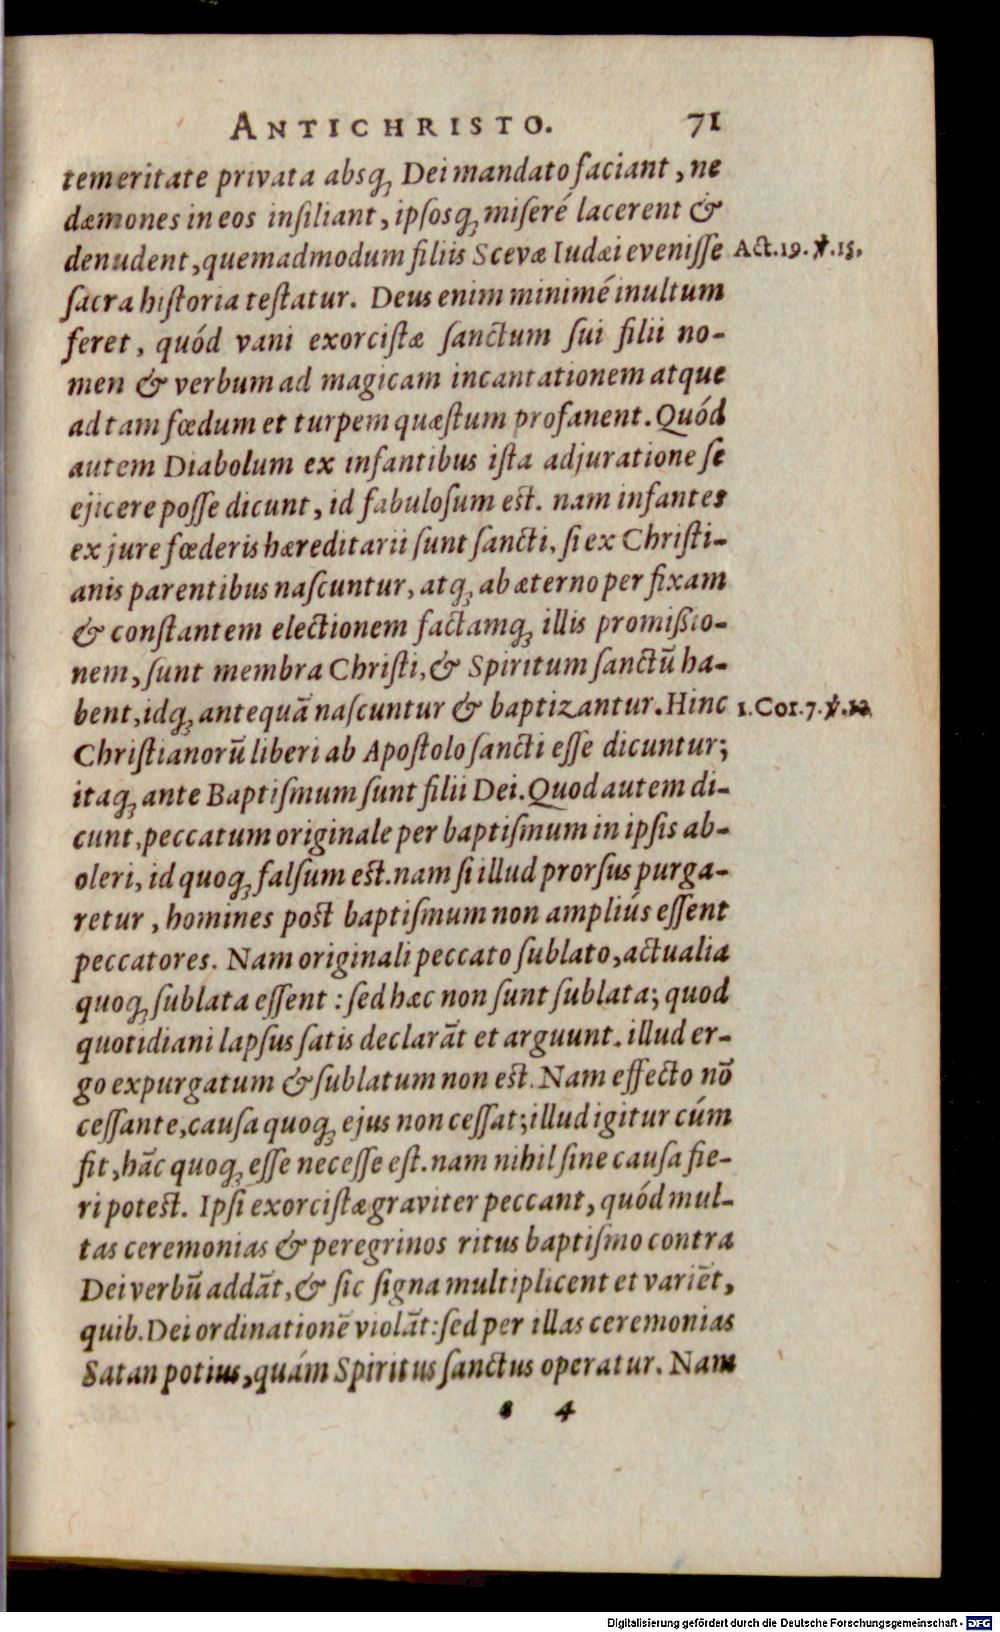 ANTICHRISTO. 71
temeritate privata absq́ꝫ Dei mandato faciant, ne
dæmones in eos inſiliant, ipſosqꝫ miſeré lacerent &
denudent, quemadmodum filiis Scevæ Iudæi eveniſſe Act. 19. ℣. 15.
ſacra hiſtoria teſtatur. Deus enim minimé inultum
feret, quód vani exorciſtæ ſanctum ſui filii no-
men & verbum ad magicam incantationem atque
ad tam fœdum et turpem quæſtum profanent. Quód
autem Diabolum ex infantibus iſta adjuratione ſe
ejicere poſſe dicunt, id fabuloſum est. nam infantes
ex jure fœderis hæreditarii ſunt ſancti, ſi ex Chriſti-
anis parentibus naſcuntur, atqꝫ ab æterno per fixam
& conſtantem electionem factamqꝫ illis promißio-
nem, ſunt membra Chriſti, & Spiritum ſanctū ha-
bent, idqꝫ antequā naſcuntur & baptizantur. Hinc 1. Cor. 7. ℣.
Chriſtianorū liberi ab Apoſtolo ſancti eſſe dicuntur;
itaqꝫ ante Baptiſmum ſunt filii Dei. Quod autem di-
cunt, peccatum originale per baptiſmum in ipſis ab-
oleri, id quoqꝫ falſum est. nam ſi illud prorſus purga-
retur, homines post baptiſmum non ampliús eſſent
peccatores. Nam originali peccato ſublato, actualia
quoqꝫ ſublata eſſent : ſed hæc non ſunt ſublata; quod
quotidiani lapſus ſatis declarāt et arguunt. illud er-
go expurgatum & ſublatum non est. Nam effecto nō
ceſſante, cauſa quoqꝫ ejus non ceſſat; illud igitur cúm
fit, hāc quoqꝫ eſſe neceſſe eſt. nam nihil ſine cauſa fie-
ri potest. Ipſi exorciſtæ graviter peccant, quód mul-
tas ceremonias & peregrinos ritus baptiſmo contra
Dei verbū addāt, & ſic ſigna multiplicent et variēt,
quib. Dei ordinationē violāt: ſed per illas ceremonias
Satan potius, quám Spiritus ſanctus operatur. Nam
4
Digitalisierung gefördert durch die Deutsche Forschungsgemeinschaft - DFG